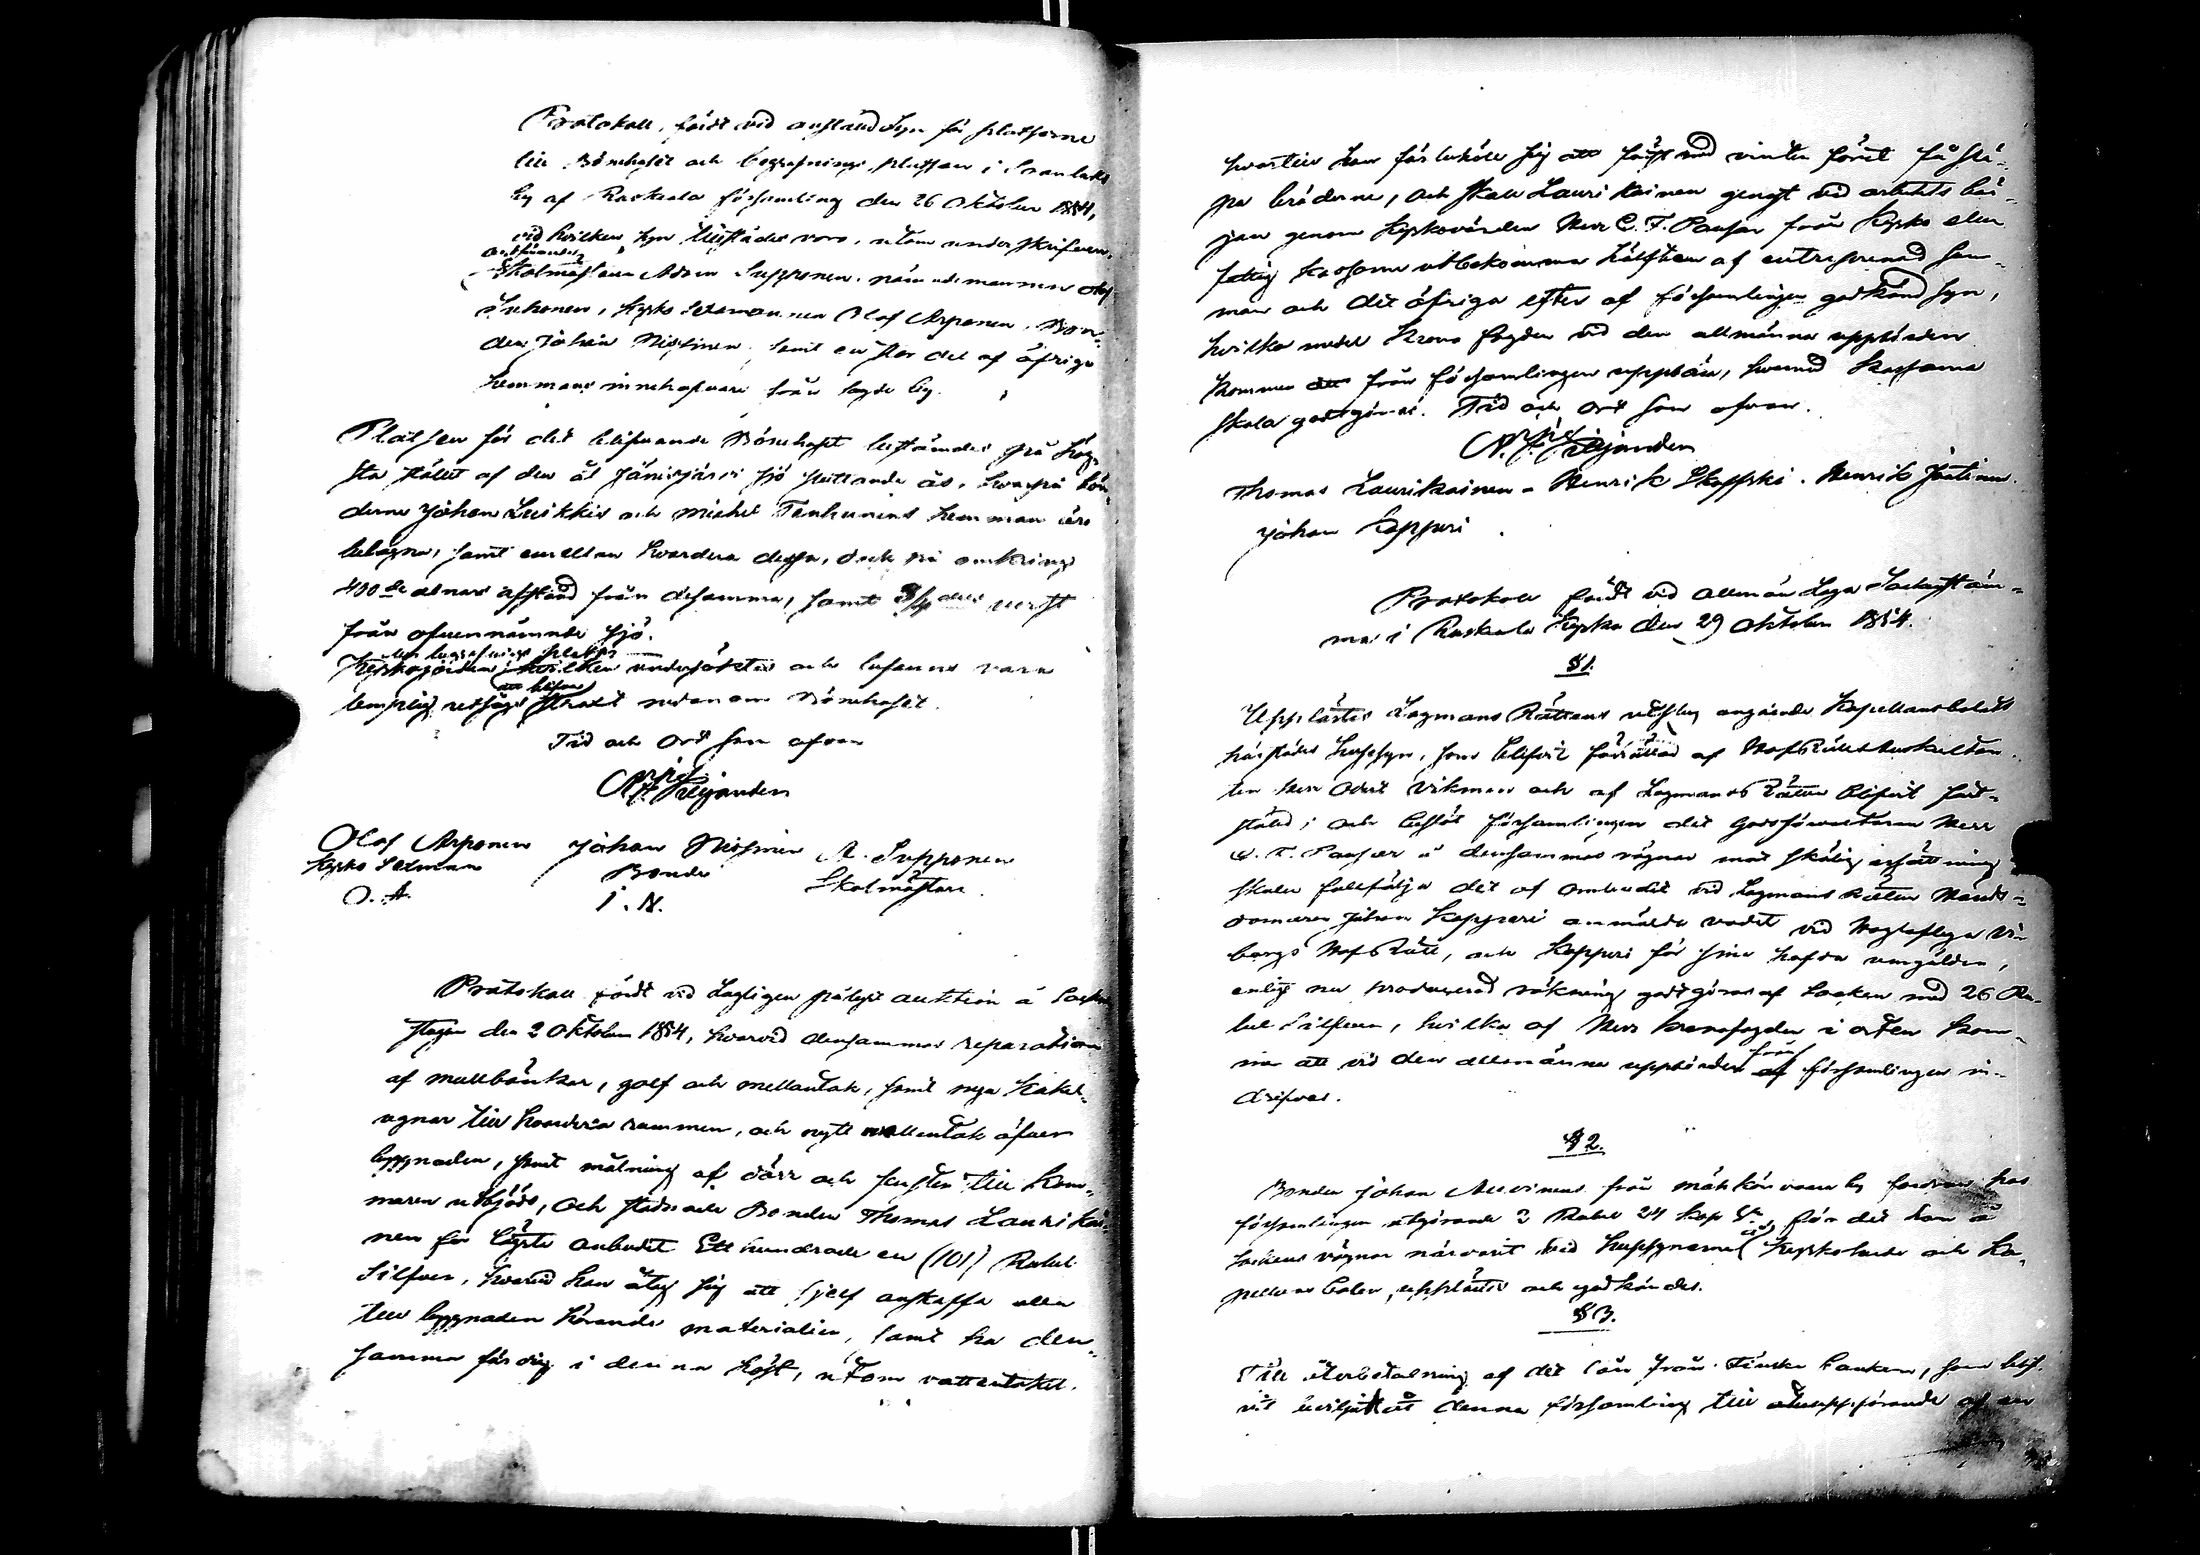 Protokoll, fördt vid anstäld syn för platserne
till Bönehuset och begrafnings platsen i
by af Ruskeala församling den 26 Oktober 1854,
vid hvilken syn tillstädes voro, utom underskrifven,
ordförande,
Skolmästaren Adam Supponen, nämndemannen Olof
Inkonen, Kyrko sexmannen Olof Arponen, Bon-
den Johan Nissinen, samt en stor del af öfriga
hemmans innehafvare från sagde by.
Platsen för det blifvande Bönehuset bestämdes på hög-
sta stället af den åt Jänisjärvi sjö stuttande ås, hvarpå bön-
derne Johan Leskkis och Michel Tenhunens hemman äro
belägna, samt emellan hvardera dessa, dock på omkring
400 de alnars afstånd från desamma, samt 3/4 dels verst
från ofvannämnde sjö.
den begrafnings platsen
Kyrkogården hvilken undersöktes och befanns vara
att blifva
lemplig, utsågs strakt nedanom Bönehuset.
Tid och Ort som ofvan
Arvid
N. F. Peijonden
Olof Arponen Johan Nissinen A. Supponen
Kyrko Sexman Bonde Skolmästare.
O. A. I. N.
Protokoll fördt vid Lagligen pålyst auktion å Socken
stugan den 2 Oktober 1854, hvarvid densammas reparation
af mullbänkar, golf och mellantak, samt nya kakel-
ugnar till hvardera rummen, och nytt mellantak öfver
byggnaden, samt målning af dörr och fenster till Kam-
maren utbjöds, och stadnade Bonden Thomas Laurikai-
nen för lägsta anbudet Ett hundrade en (101) Rubel
Silfver, hvarvid han åtog sig att sjelf anskaffa alla
till byggnaden hörande materialier, samt ha den-
samma färdig i denna höst, utom vattentaket.
hvartill han förbehöll sig att först med vinter föret få slä-
pa bräderne, och skall Laurikainen genast vid arbetets bör-
jan genom Kyrkovärden Herr C. F. Pauser från Kyrko eller
fattig kassorna utbekomma hälften af entreprenad sum-
man och det öfriga efter af församlingen godkänd syn,
hvilka medel Krono fogden vid den allmänna uppbörden
kommer att från församlingen uppbära, hvarmed Kassorna
skola godtgöras. Tid och ort som ofvan.
Arvid
N. F. Peijonden
Thomas Laurikainen - Henrik Skoffski. Henrik Jäntinen.
Johan Kopperi
Protokoll fördt vid allmän Laga Sockenstäm-
ma i Ruskeala Kyrka den 29 Oktober 1854.
§ 1.
Upplästes Lagmans Rättens utslag angående Kapellansbolets
härstädes husesyn, som blifvit förrättad af Hofrätts Auskultan
ten Herr Odert Vikman och af Lagmans Rätten blifvit fast-
stäld; och beslöt församlingen det Godsförvaltaren Herr
C. F. Pauser å densammas vägnar mot skälig ersättning
skulle fullfölja det af ombudet vid Lagmans Rätten Härads-
domaren Johan Kopperi anmälda vadet vid Höglofliga Vi-
borgs Hof Rätt, och Kopperi för sina hafda omgälder,
enligt nu producerad räkning godtgöras af Socken med 26 Ru-
bel Silfver, hvilka af Herr Kronofogden i orten kom-
ma att vid den allmänna uppbörden från af församlingen in-
drifvas.
§ 2.
Bonden Johan från by fordran hos
församlingen utgörande 2 Rubel 24 Kop Sr. för det han å
Sockens vägnar närvarit vid husesynerne å Kyrkoherde och Ka-
pellans bolen, upplästes och godkändes.
§ 3.
Till återbetalning af det lån från Finska banken, som blif-
vit beviljadt åt denna församling till uppförande af en